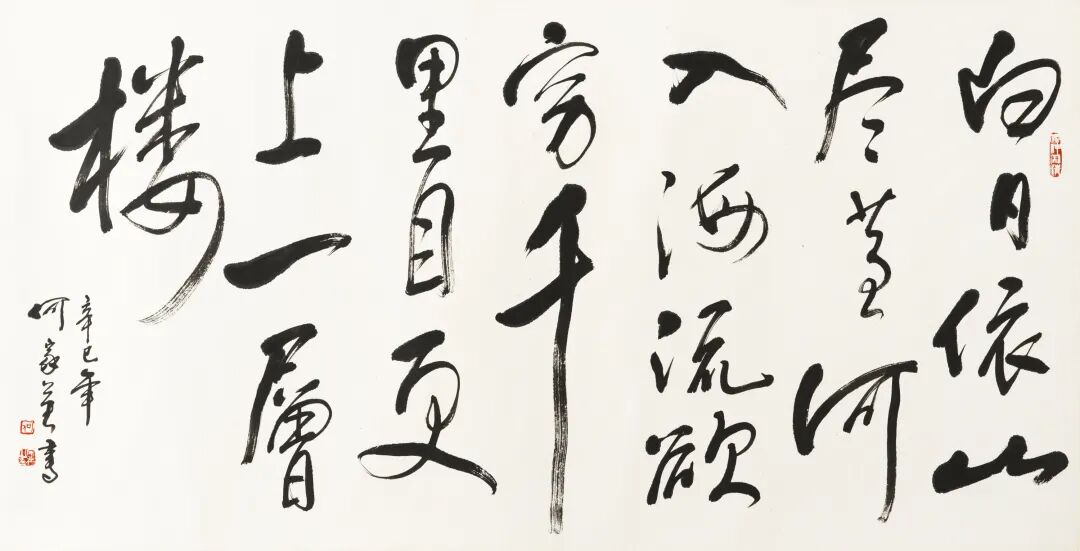 白日依山
尽黄河
入海流欲
穷千
里目更
上一層
楼
辛巳年
何家英書